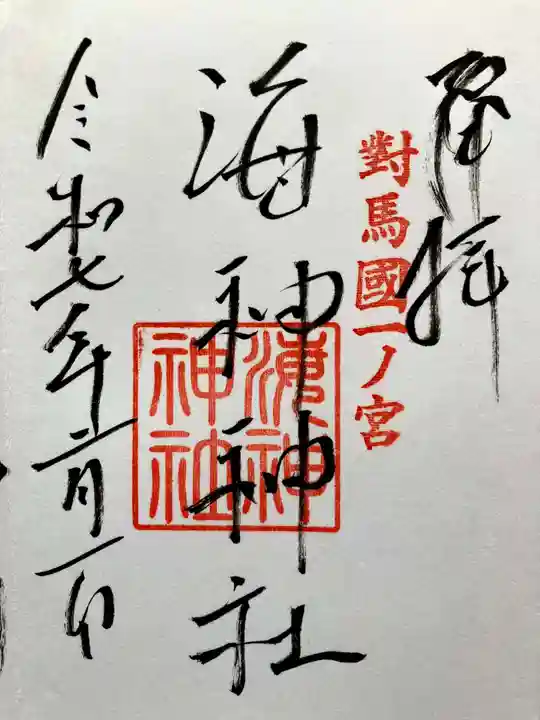 拝
對馬國一ノ宮
海神神社
海神
神社
令和七年二月一日